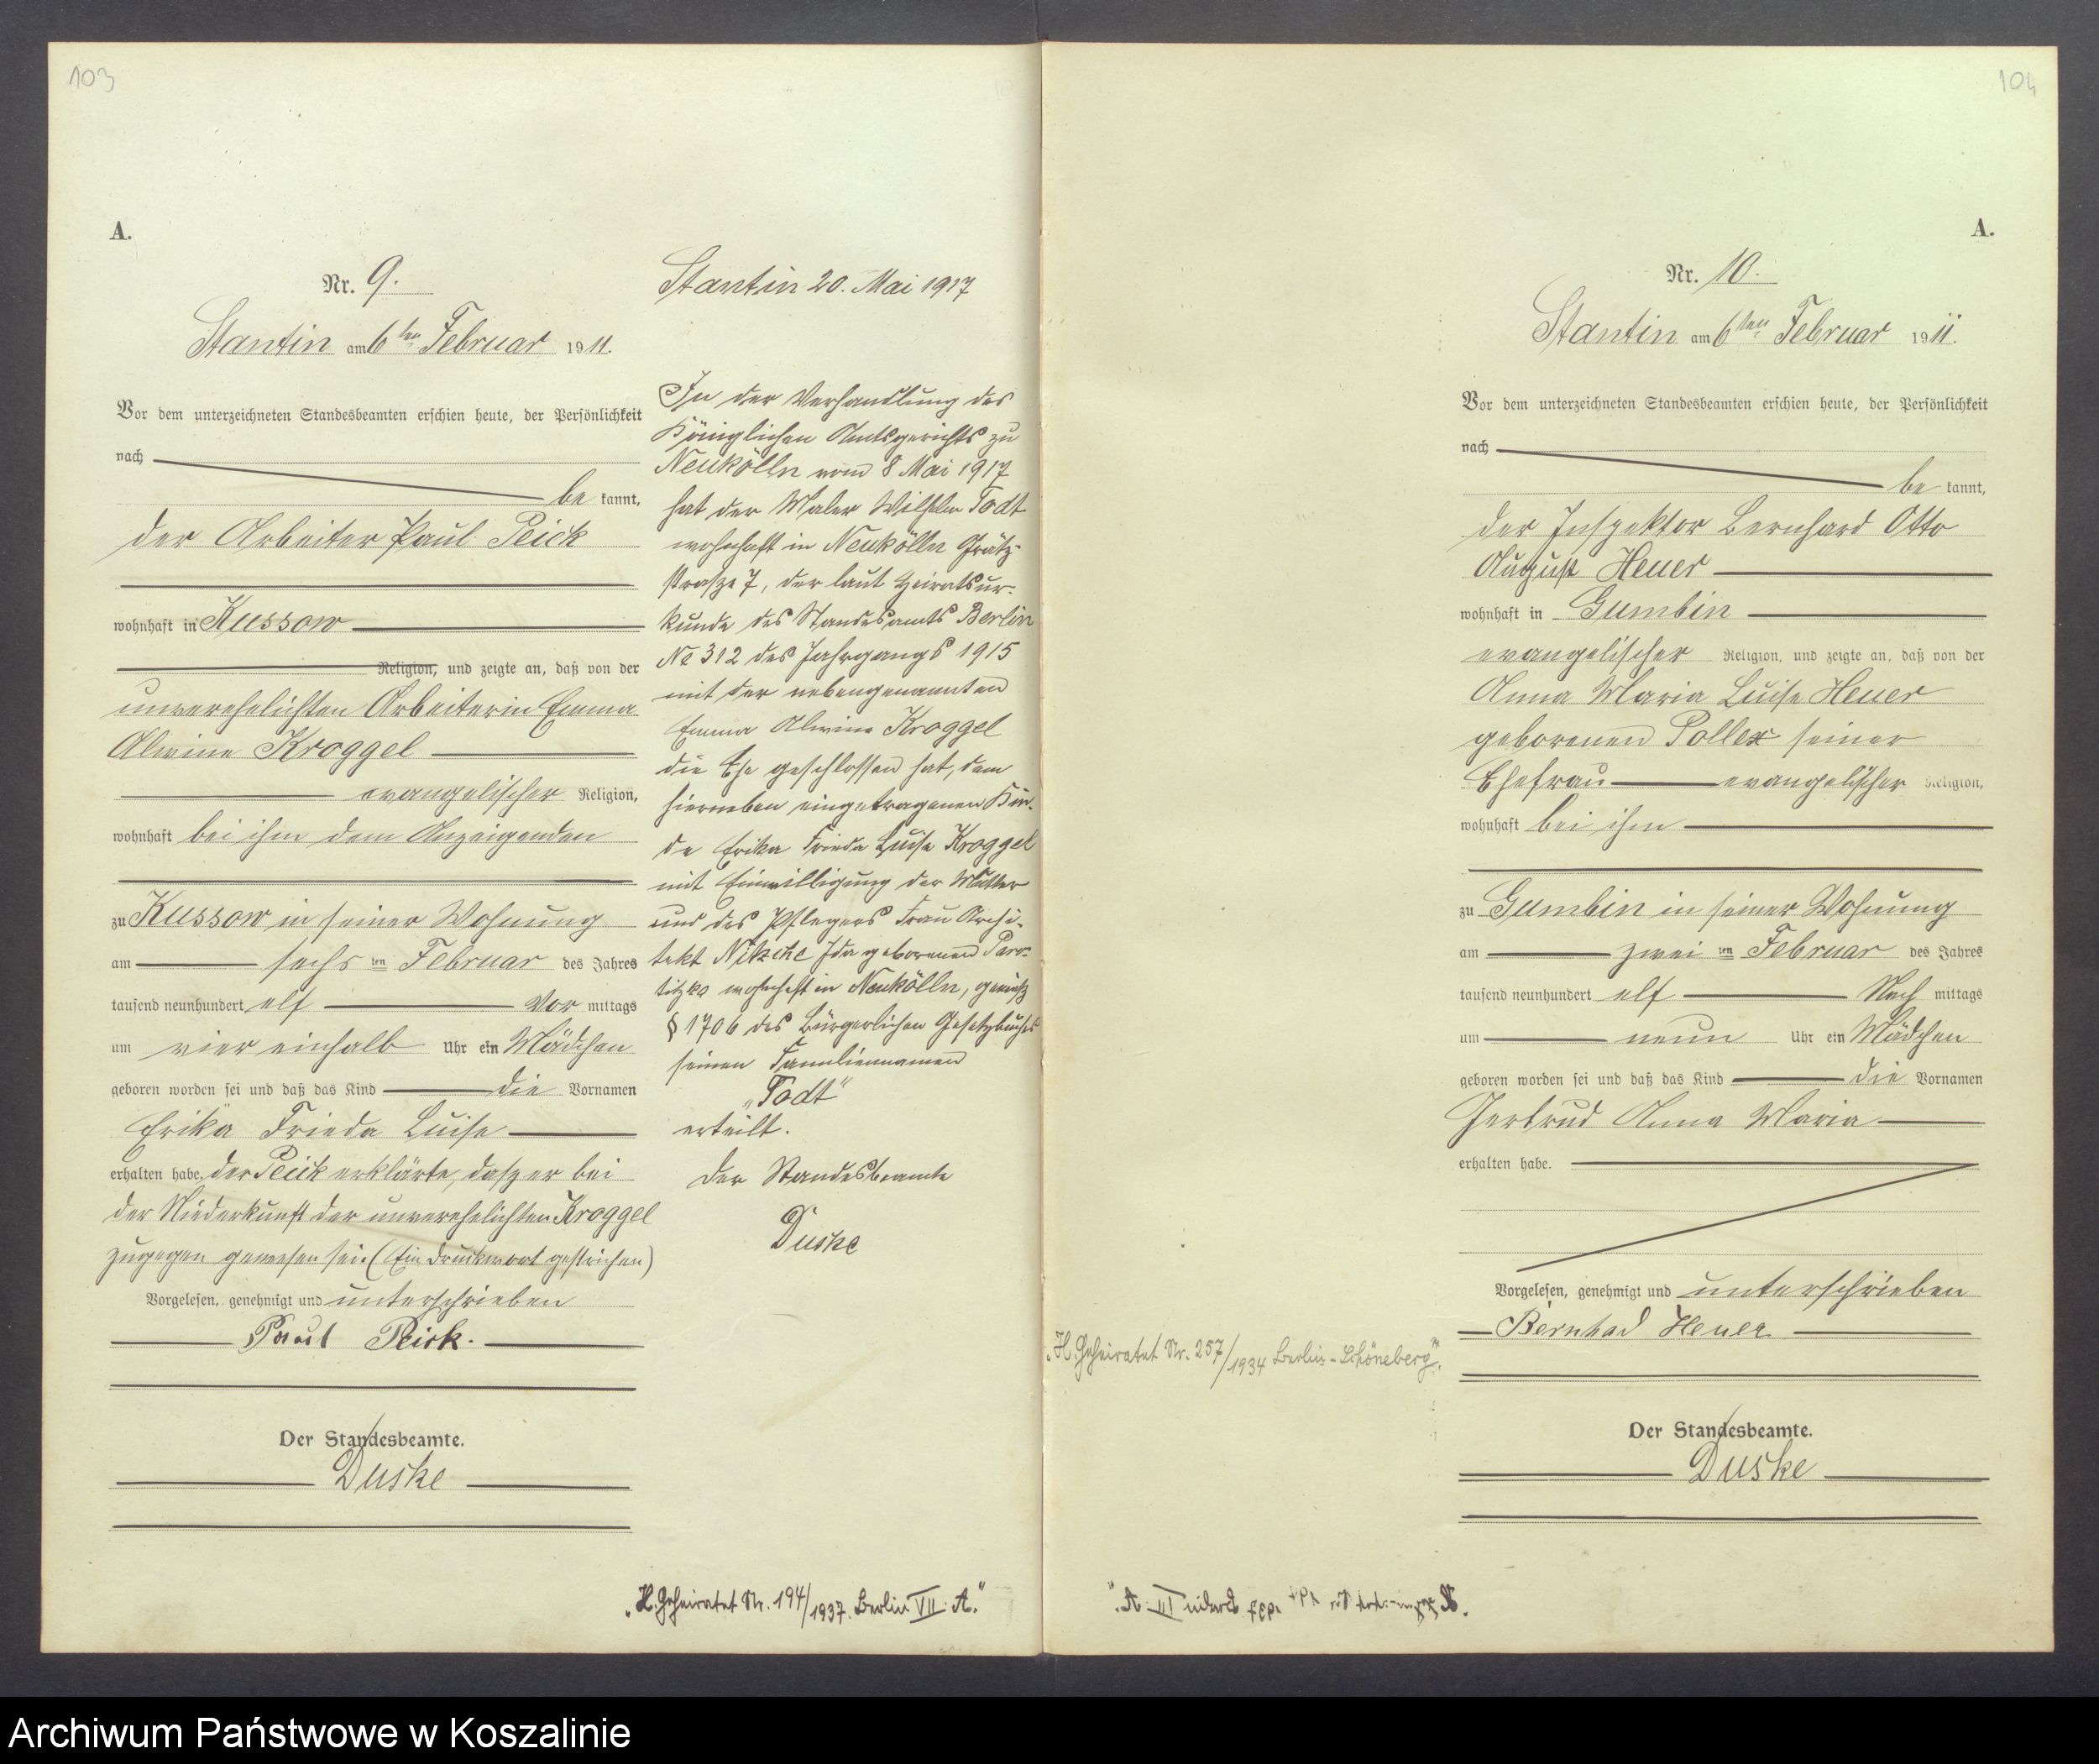 103
A.
Nr. 9.
Stantin am 6ten Februar 1911.
Vor dem unterzeichneten Standesbeamten erschien heute, der Persönlichkeit
nach
be kannt,
der Arbeiter Paul Peick
wohnhaft in Kussow
Religion, und zeigte an, daß von der
unverehelichten Arbeiterin Emma
Alwine Kroggel
evangelischer Religion,
wohnhaft bei ihm dem Anzeigenden
zu Kussow in seiner Wohnung
am sechs ten Februar des Jahres
tausend neunhundert elf Vor mittags
um vier einhalb Uhr ein Mädchen
geboren worden sei und daß das Kind die Vornamen
Erika Frieda Luise
erhalten habe. der Peick erklärte, dasz er bei
der Niederkunft der unverehelichten Kroggel
zugegen gewesen sei. (Ein Druckwort gestrichen)
Vorgelesen, genehmigt und unterschrieben
Paul Peick.
Der Standesbeamte.
Duske
Stantin 20. Mai 1917
In der Verhandlung des
Königlichen Amtsgerichts zu
Neukölln vom 8 Mai 1917
hat der Maler Wilhelm Todt
wohnhaft in Neukölln Grätz-
strasze 7, der laut Heiratsur-
kunde des Standesamts Berlin
No 312 des Jahrgangs 1915
mit der nebengenannten
Emma Alwine Kroggel
die Ehe geschlossen hat, dem
hierneben eingetragenen Kin-
de Erika Frieda Luise Kroggel
mit Einwilligung der Mutter
und des Pflegers Frau Archi-
tekt Nitzche Ida geborenen
wohnhaft in Neukölln, gemäsz
§ 1706 des Bürgerlichen Gesetzbuches
seinen Familiennamen
„Todt"
erteilt.
Der Standesbeamte
Duske
„H. Geheiratet Nr. 194/1937. Berlin VII A."
104
A.
Nr. 10.
Stantin am 6ten Februar 1911.
Vor dem unterzeichneten Standesbeamten erschien heute, der Persönlichkeit
nach
be kannt,
der Inspektor Bernhard Otto
August Heuer
wohnhaft in Gumbin
evangelischer Religion, und zeigte an, daß von der
Anna Maria Luise Heuer
geborenen Pollex seiner
Ehefrau evangelischer Religion,
wohnhaft bei ihm
zu Gumbin in seiner Wohnung
am zwei ten Februar des Jahres
tausend neunhundert elf Nach mittags
um neun Uhr ein Mädchen
geboren worden sei und daß das Kind die Vornamen
Gertrud Anna Maria
erhalten habe.
Vorgelesen, genehmigt und unterschrieben
Bernhad Heuer
„H. Geheiratet Nr. 257/1934 Berlin-Schöneberg".
Der Standesbeamte.
Duske
Archiwum Państwowe w Koszalinie